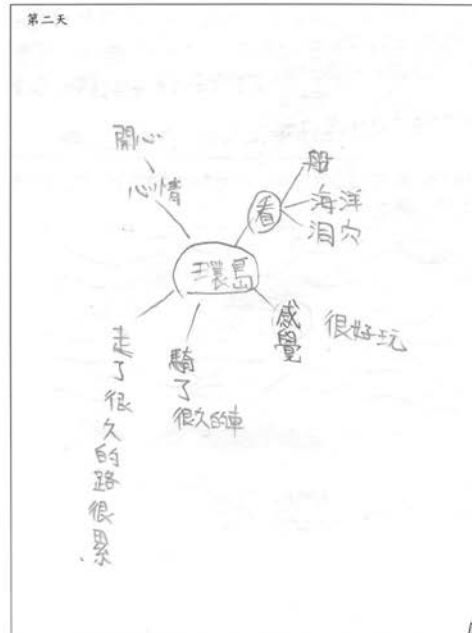 第二天
開心
心情
看
船
海洋
洞穴
環島
感覺
很好玩
騎了
很久的車
走了很久的路很累